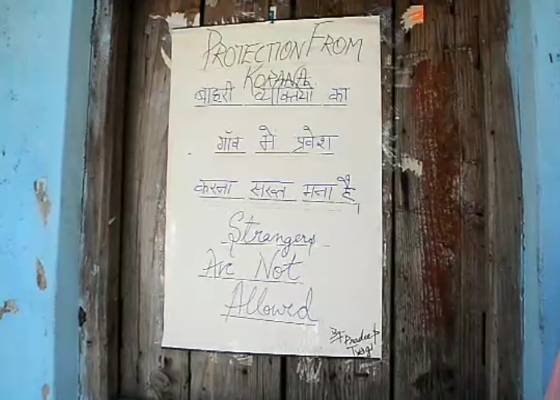 PROTECTION FROM
KORANA
बाहरी व्यक्तियों का
गॉव में प्रवेश
करना सख्त मना है।
Strangers
Are Not
Allowed
By
Pradeep
Tyagi